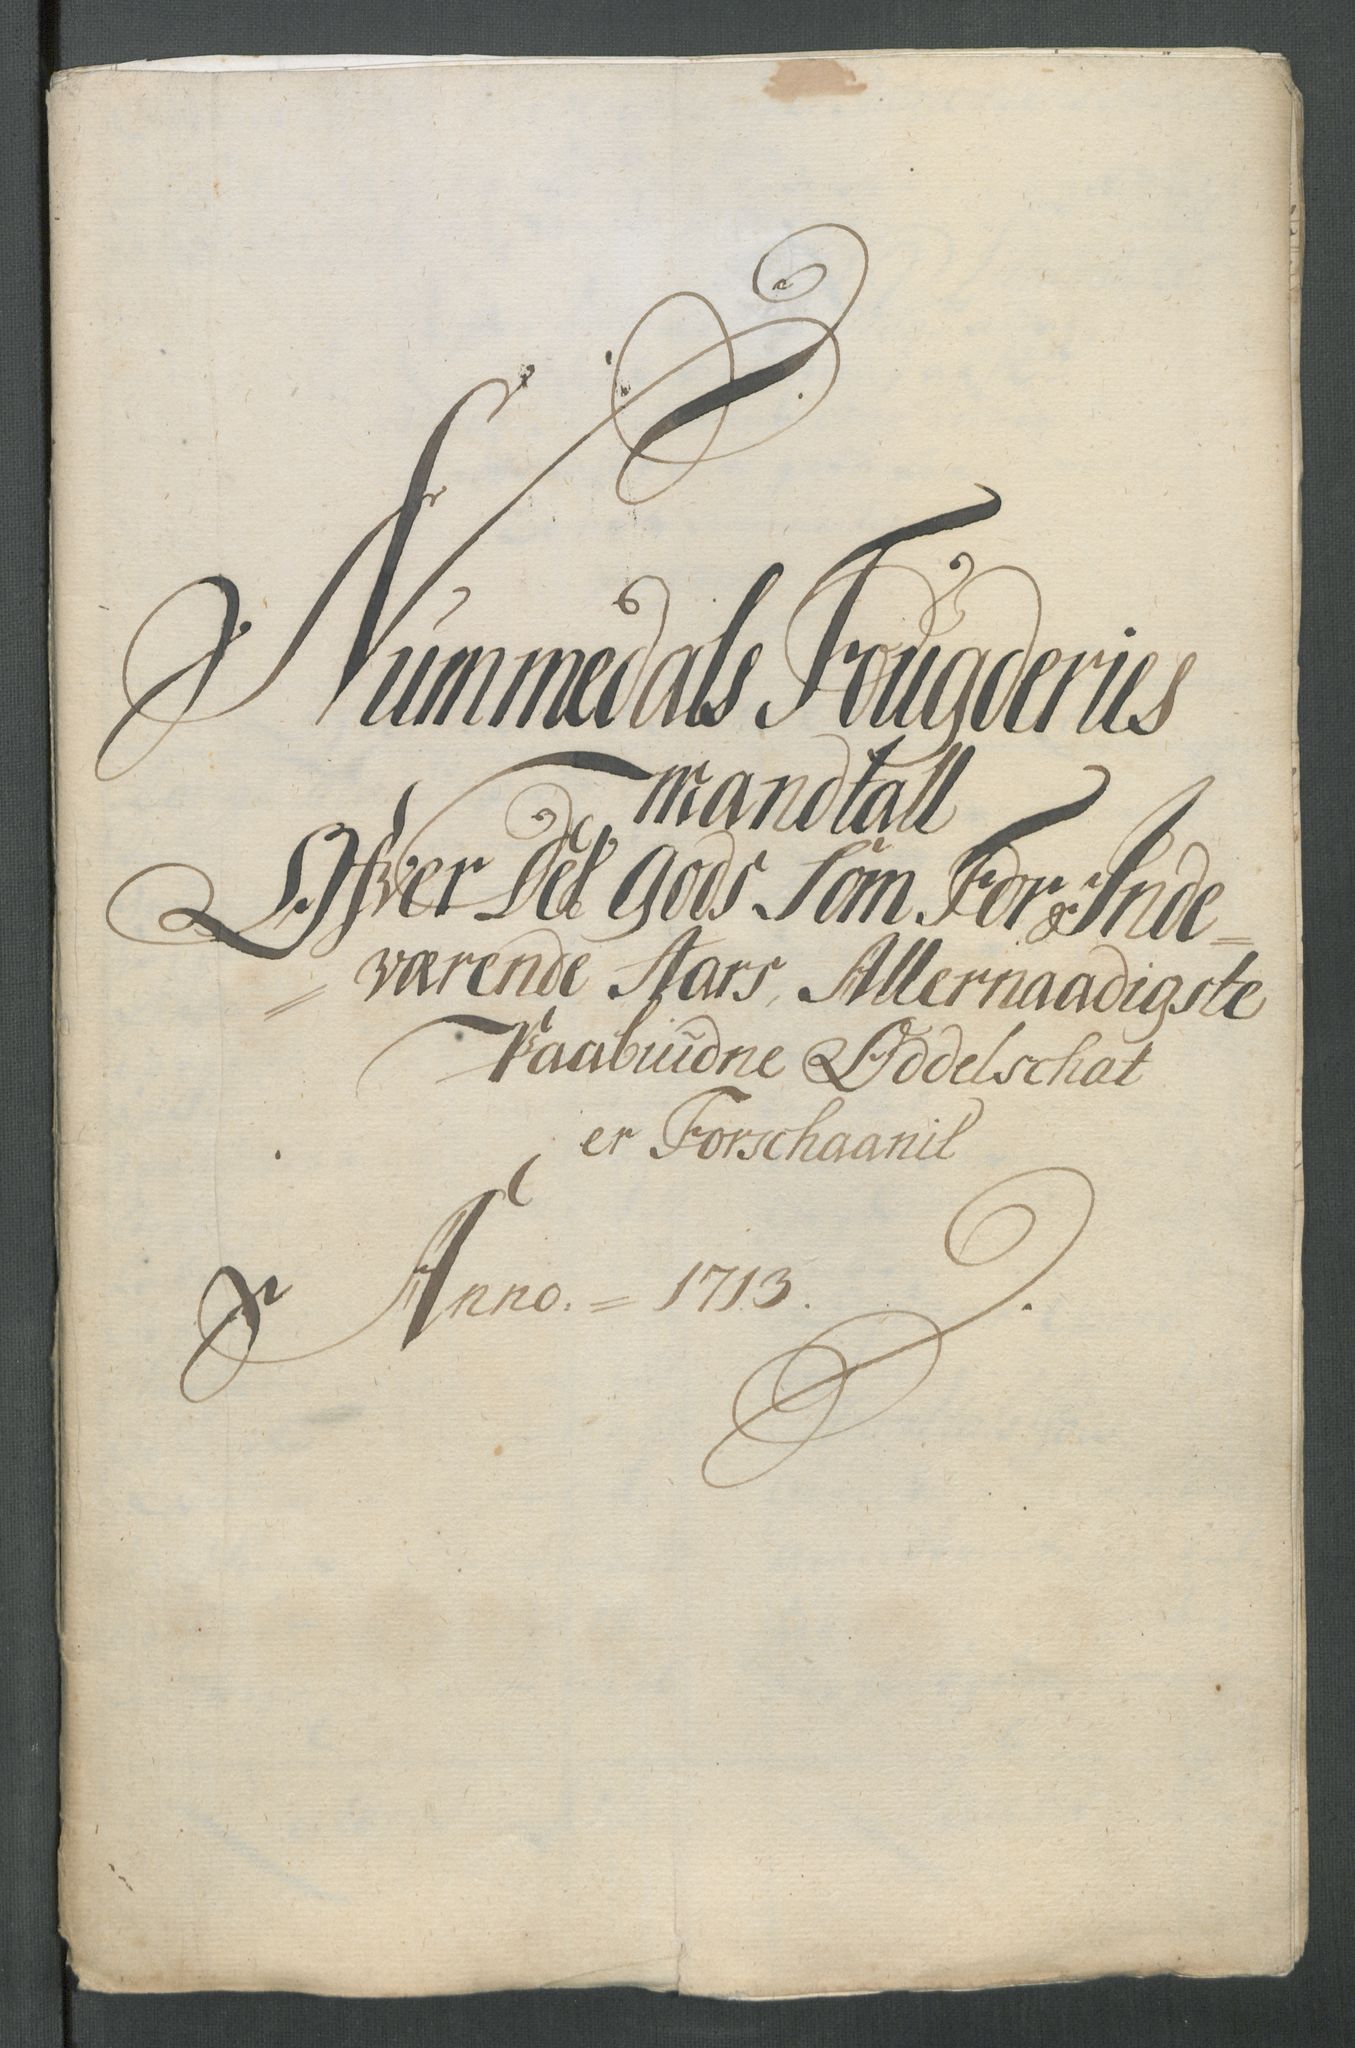 Nummedals Fougderies
mandtall
Ofver Det gods Som For Inde=
=værende Aars, Allernaadigste
Paabudne Oddelschat
er Forschaanit
Anno. = 1713.